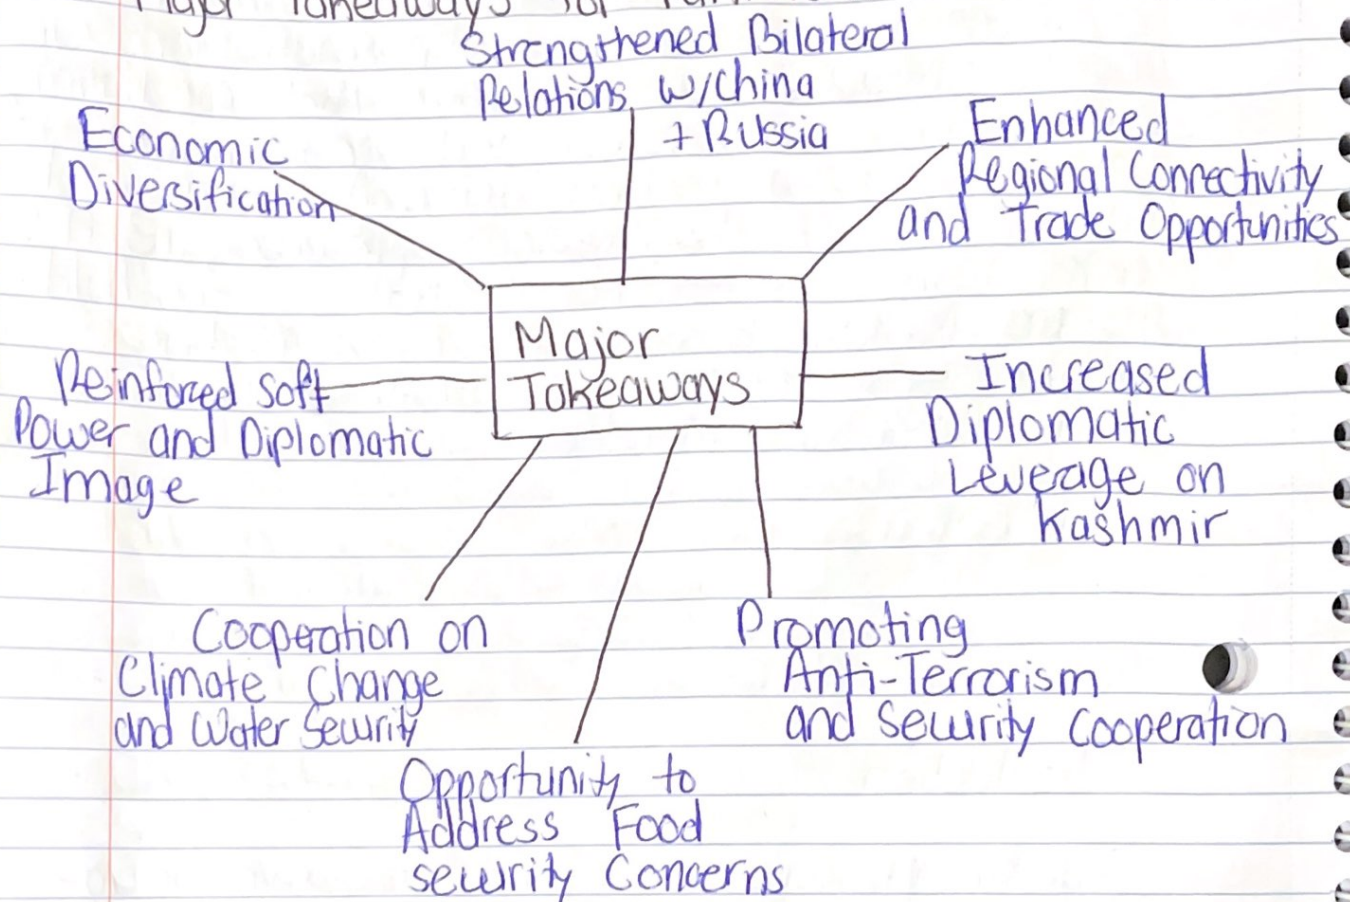 Major Takeaways for
Strengthened Bilateral
Relations w/China
+ Russia
Economic
Diversification
Enhanced
Regional Connectivity
and Trade Opportunities
Major
Takeaways
Reinforced Soft
Power and Diplomatic
Image
Increased
Diplomatic
Leverage on
Kashmir
Cooperation on
Climate Change
and Water Security
Promoting
Anti-Terrorism
and Security Cooperation
Opportunity to
Address Food
security Concerns